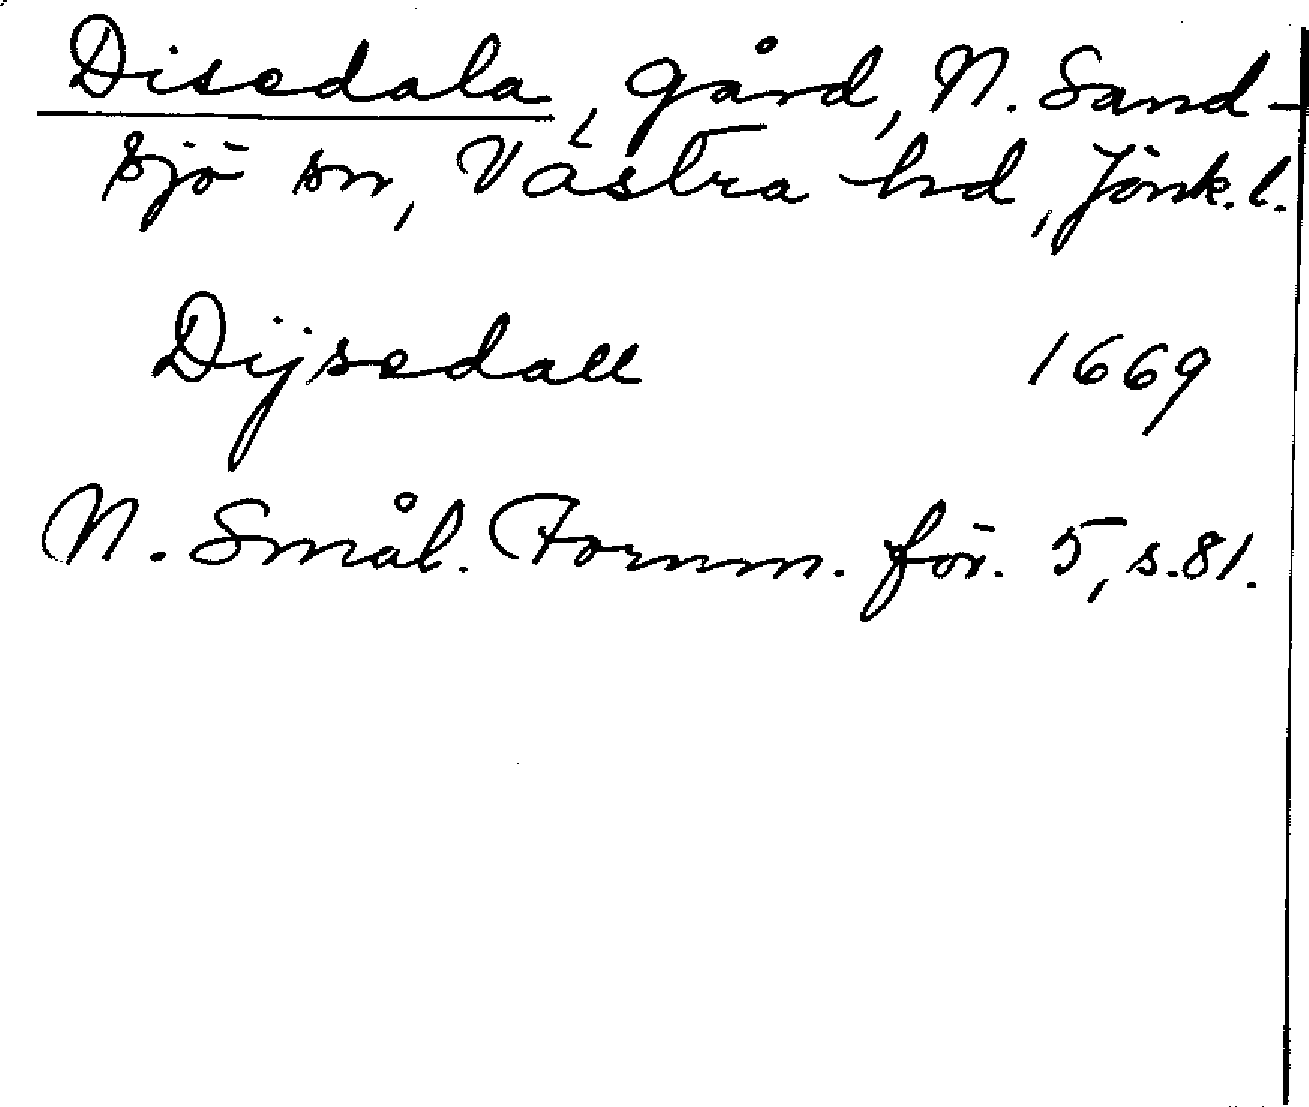 Disedala, gård, N. Sand-
sjö sn, Västra hd, Jönk. l.
Dijsedall 1669
N. Smål. Fornm. för. 5, s. 81.